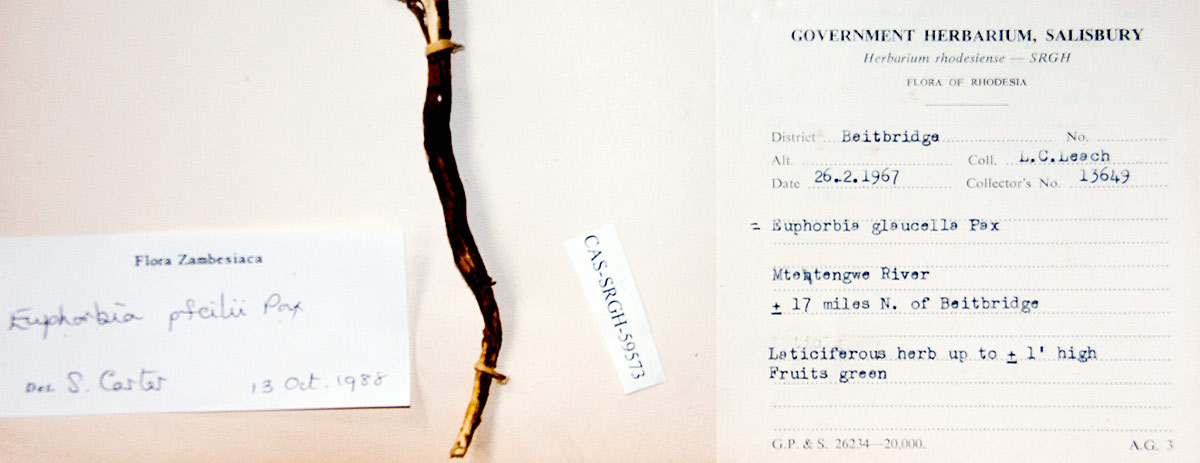 Flora Zambesiaca
Euphorbia pfeilii Pax
Det. S. Carter 13 Oct. 1988
CAS-SRGH-59573
GOVERNMENT HERBARIUM, SALISBURY
Herbarium rhodesiense — SRGH
FLORA OF RHODESIA
District Beitbridge No.
Alt. Coll. L.C.Leach
Date 26.2.1967 Collector's No. 13649
= Euphorbia glaucella Pax
Mtentengwe River
± 17 miles N. of Beitbridge
Laticiferous herb up to ± 1' high
Fruits green
G.P. & S. 26234—20,000. A.G. 3